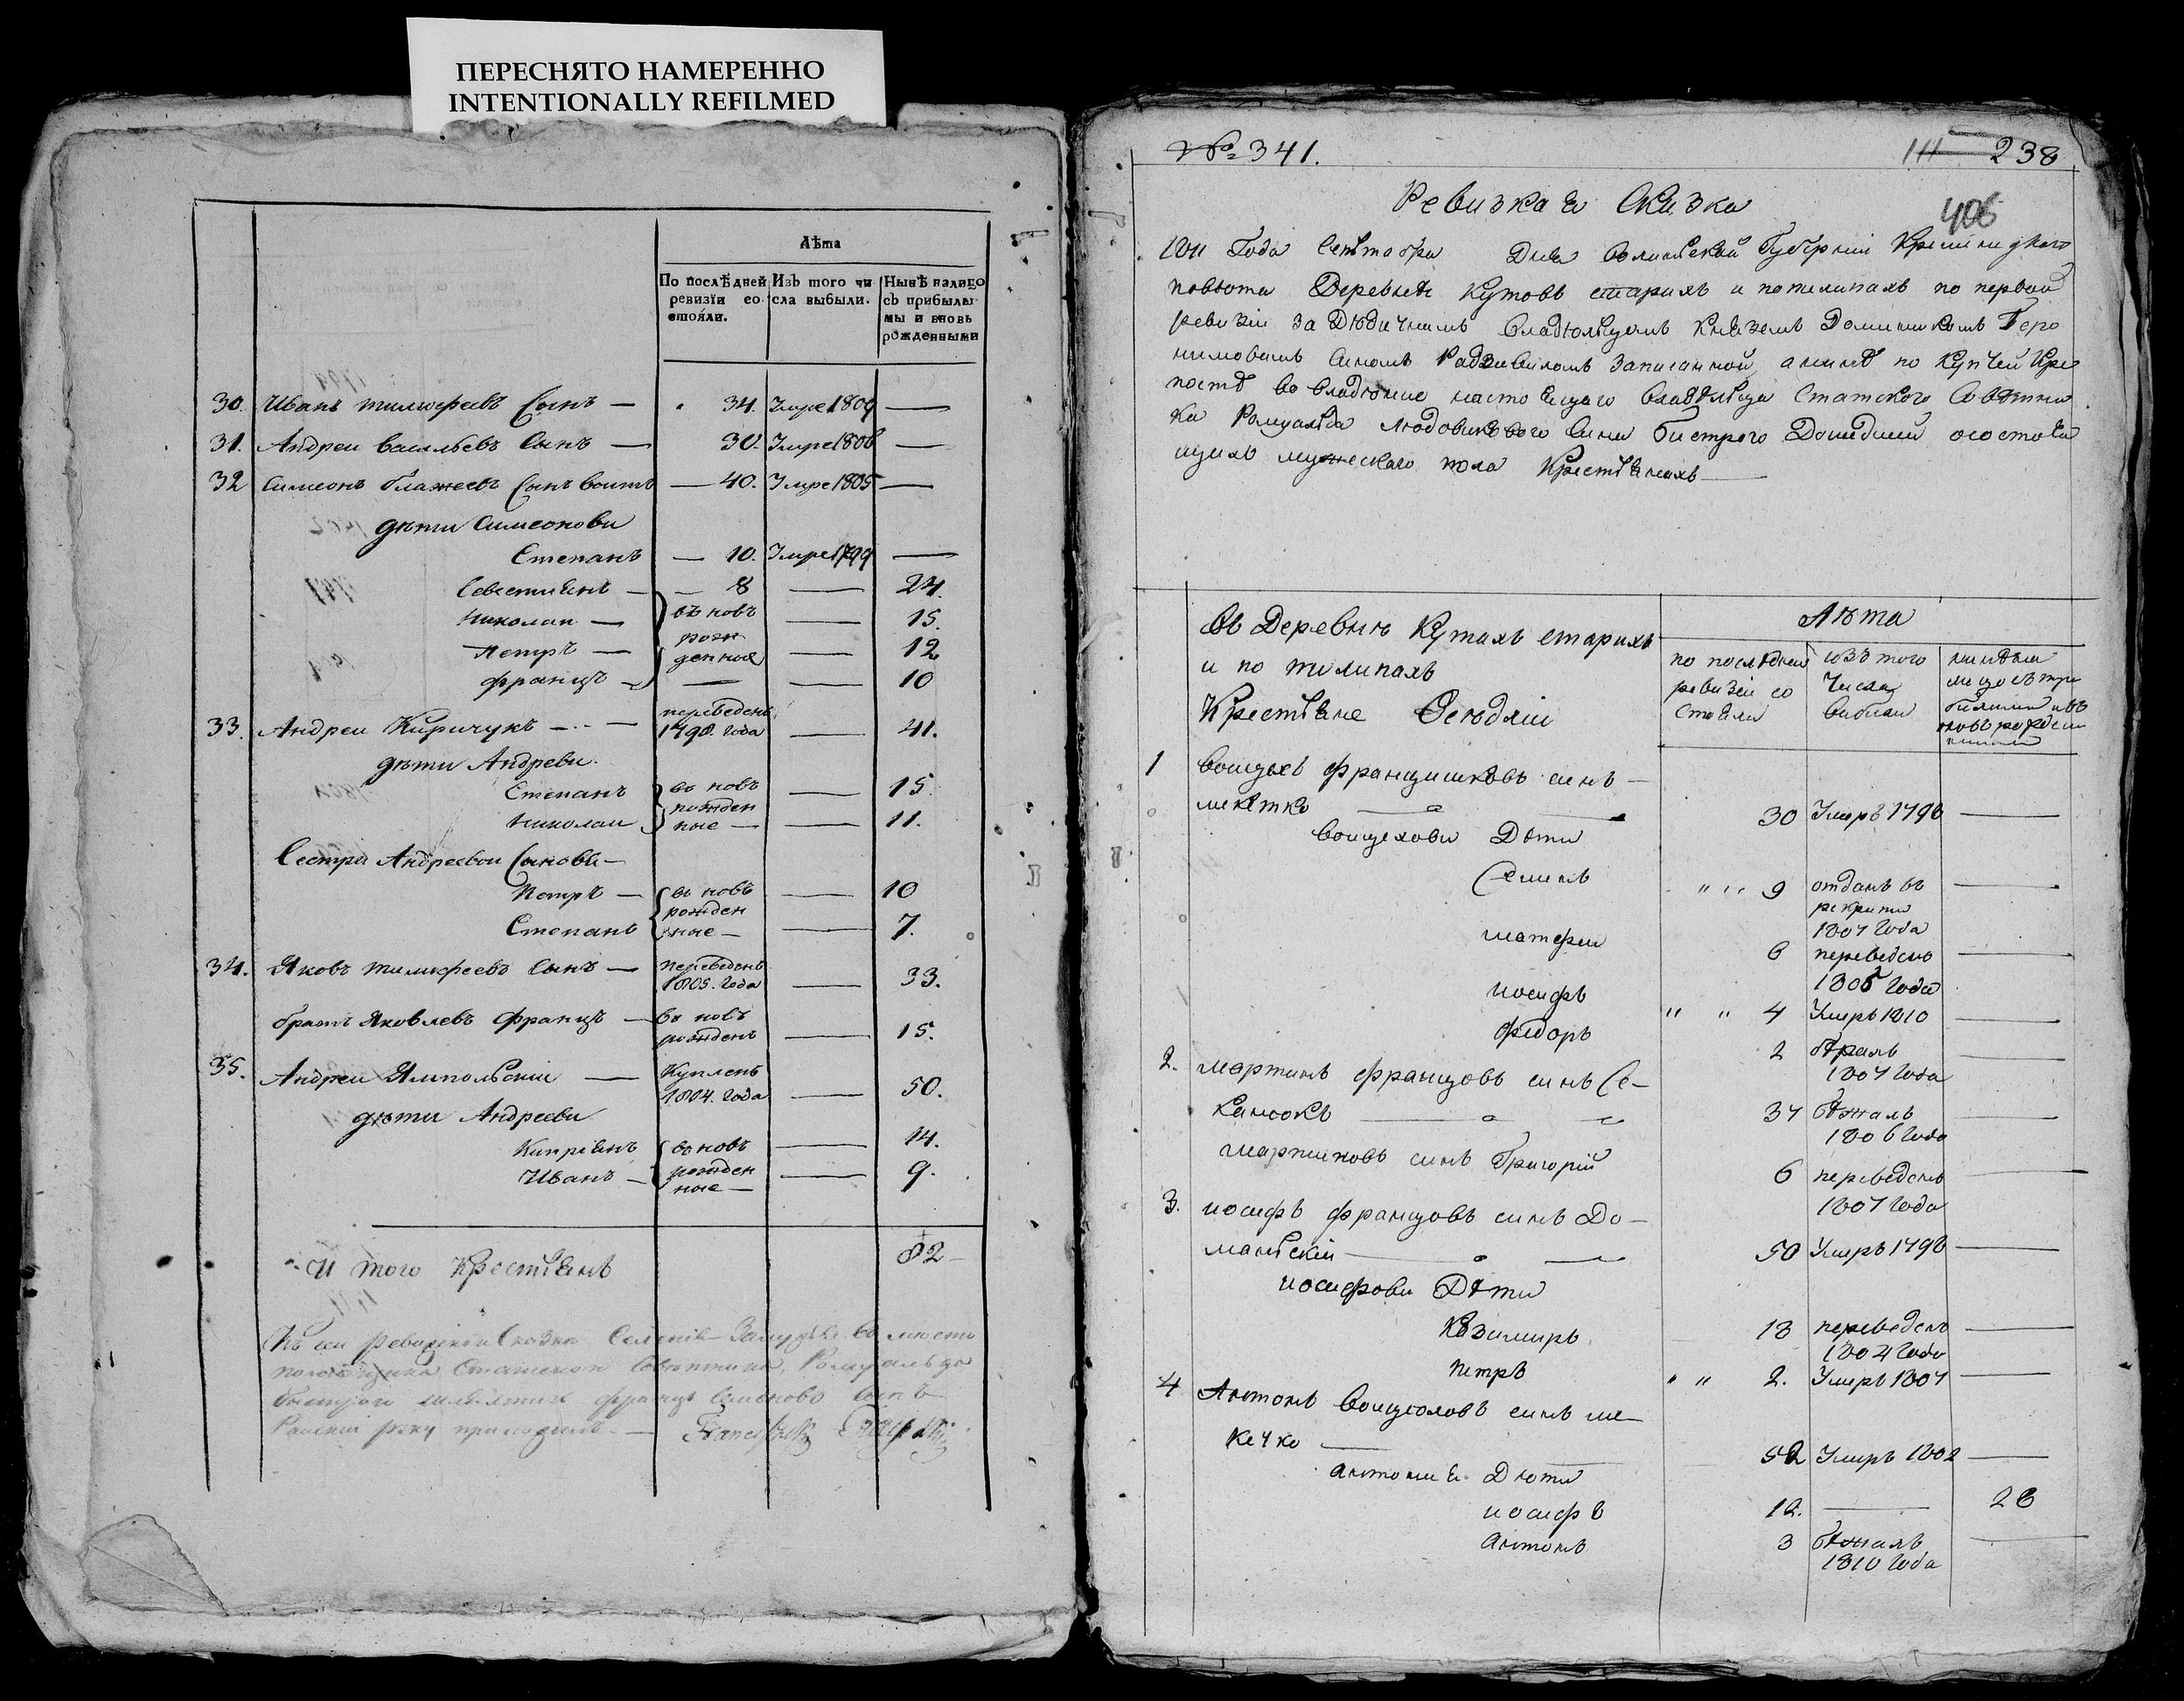 ПЕРЕСНЯТО НАМЕРЕННО
INTENTIONALLY REFILMED
Лѣта
По послѣдней ревизїи состояли.
Изъ того числа выбыли.
Нынѣ налицо съ прибылыми и вновь рожденными
30. Иванъ тимофеевъ Сынъ — 34. Умре 1809 —
31. Андреи Васильевъ Сынъ — 30. Умре 1806 —
32 Симеонъ блажеевъ Сынъ воитъ — 40. Умре 1805 —
дѣти Симеонови
Степанъ — 10. Умре 1799 —
Севестиянъ — 8 — 24.
Николаи — въ новъ — 15.
Петръ — рож — 12
францъ — денные — 10
33. Андреи Киричукъ — переведенъ 1798. года — 41.
дѣти Андреви.
Степанъ во новъ — 15.
Николаи рожденные — 11.
Сестри Андреевои Синови —
Петръ — во новъ — 10
Степанъ рожденные — 7.
34. Яковъ тимофеевъ Сынъ — переведенъ 1805. года — 33.
братъ Яковлевъ францъ — во новъ рожденъ — 15.
35. Андреи Ямпольскіи — Купленъ 1804. года — 50.
дѣти Андрееви
Киприянъ во новъ — 14.
Иванъ — рожденные — 9.
И того Крестьянъ 82
Къ сеи ревизскои Сказки
Статскои Совѣтника, Ромуальда
францъ
руку приложилъ —
№ 341.
111 238
406
Ревизкая Сказка
1811 Года Сентабра Дня Волинской Губерніи Кременецкого
повюта Деревнѣ Кутовъ старихъ и потилипахъ по первой
ревизіи за Дюдичнимъ Владюльцомъ Княземъ Домиником Геро
нимовимъ Синомъ Радзивиломъ записанной, а нинѣ по Купчей Кре
постѣ во Владюние настоящаго Владѣльца Статского Совѣтни
ка Ромуальда Людовикового Сина Бистрого Дошедшей о состоя
щихъ мужескаго пола Крестьянахъ —
Въ Деревнѣ Кутахъ старихъ
и по тилипахъ
Крестьяне Осюдліи
Лѣта
по послѣдней ревизіи состояли
изъ того числа вибили
1 Воицехъ францишковъ синъ —
30 Умеръ 1798 —
Воицехови Дѣти
Семинъ " " 9 отданъ въ рекрути 1807 Года —
матфеи 6 переведенъ 1805 Года —
иосифъ " " 4 Умеръ 1810 —
федоръ 2 1807 Года —
2. мартинъ францовъ синъ Се-
канюкъ — 37 бѣжалъ 1806 Года —
мартиновъ синъ Григорій 6 переведенъ 1807 Года —
3. иосифъ францовъ синъ До-
манскій — 50 Умеръ 1798 —
иосифови Дѣти
Казимиръ 13 переведенъ 1804 Года —
петръ " " 2. Умеръ 1807 —
4 Антонъ Воицюховъ синъ ме-
кечко — 52 Умеръ 1802 —
антония Дюти
иосифъ 12. — 28
антонъ 3 бѣжалъ 1810 Года —